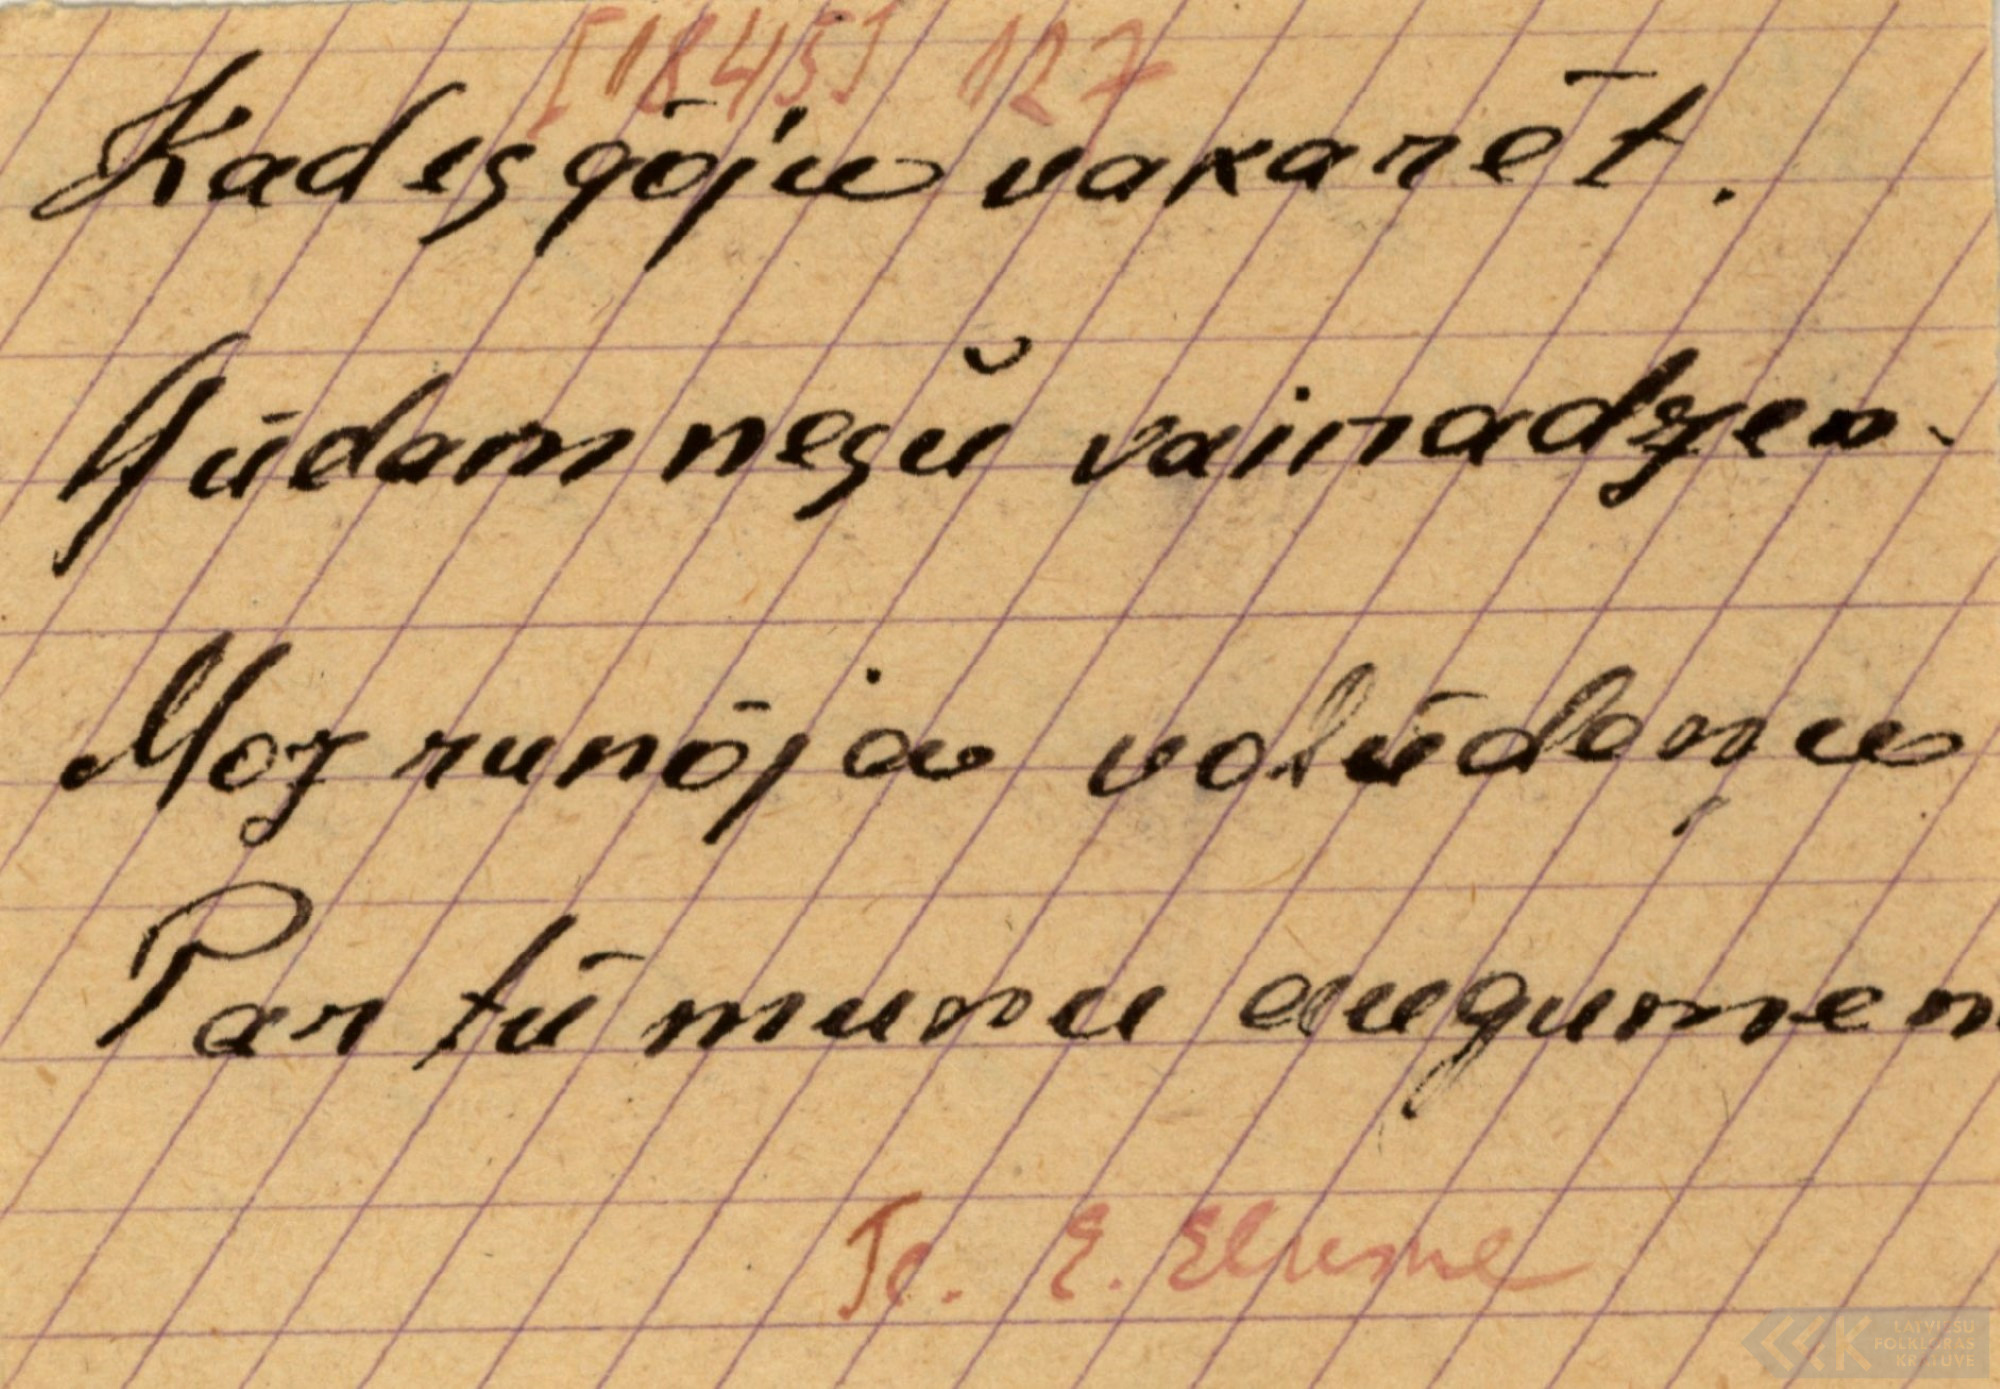 [1845] 127
Kad es gōju vakarēt.
Gūdam nesu̎ vainadzen.
Moz runōja volūdeņu
Par tū munu augumen
E.
LATVIEŠU
FOLKLORAS
KRĀTUVE